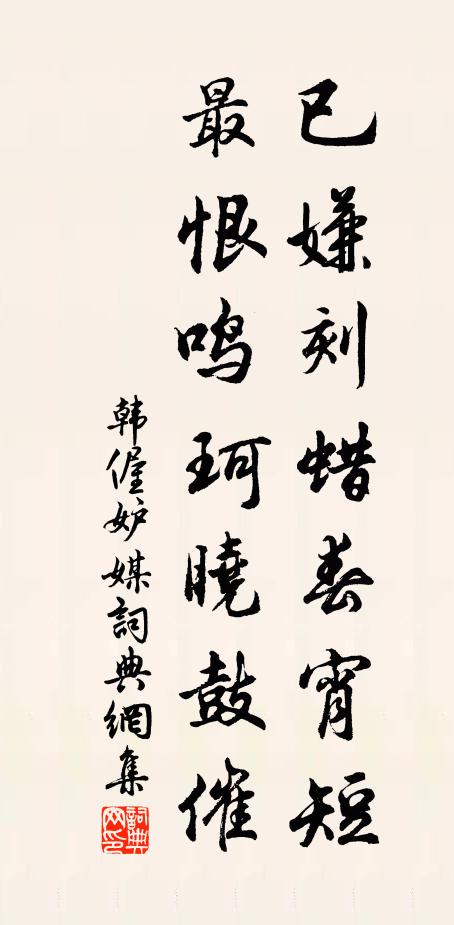 已嫌刻蜡春宵短
最恨鸣珂曉鼓催
韩偓妒媒詞典網集
詞典网印